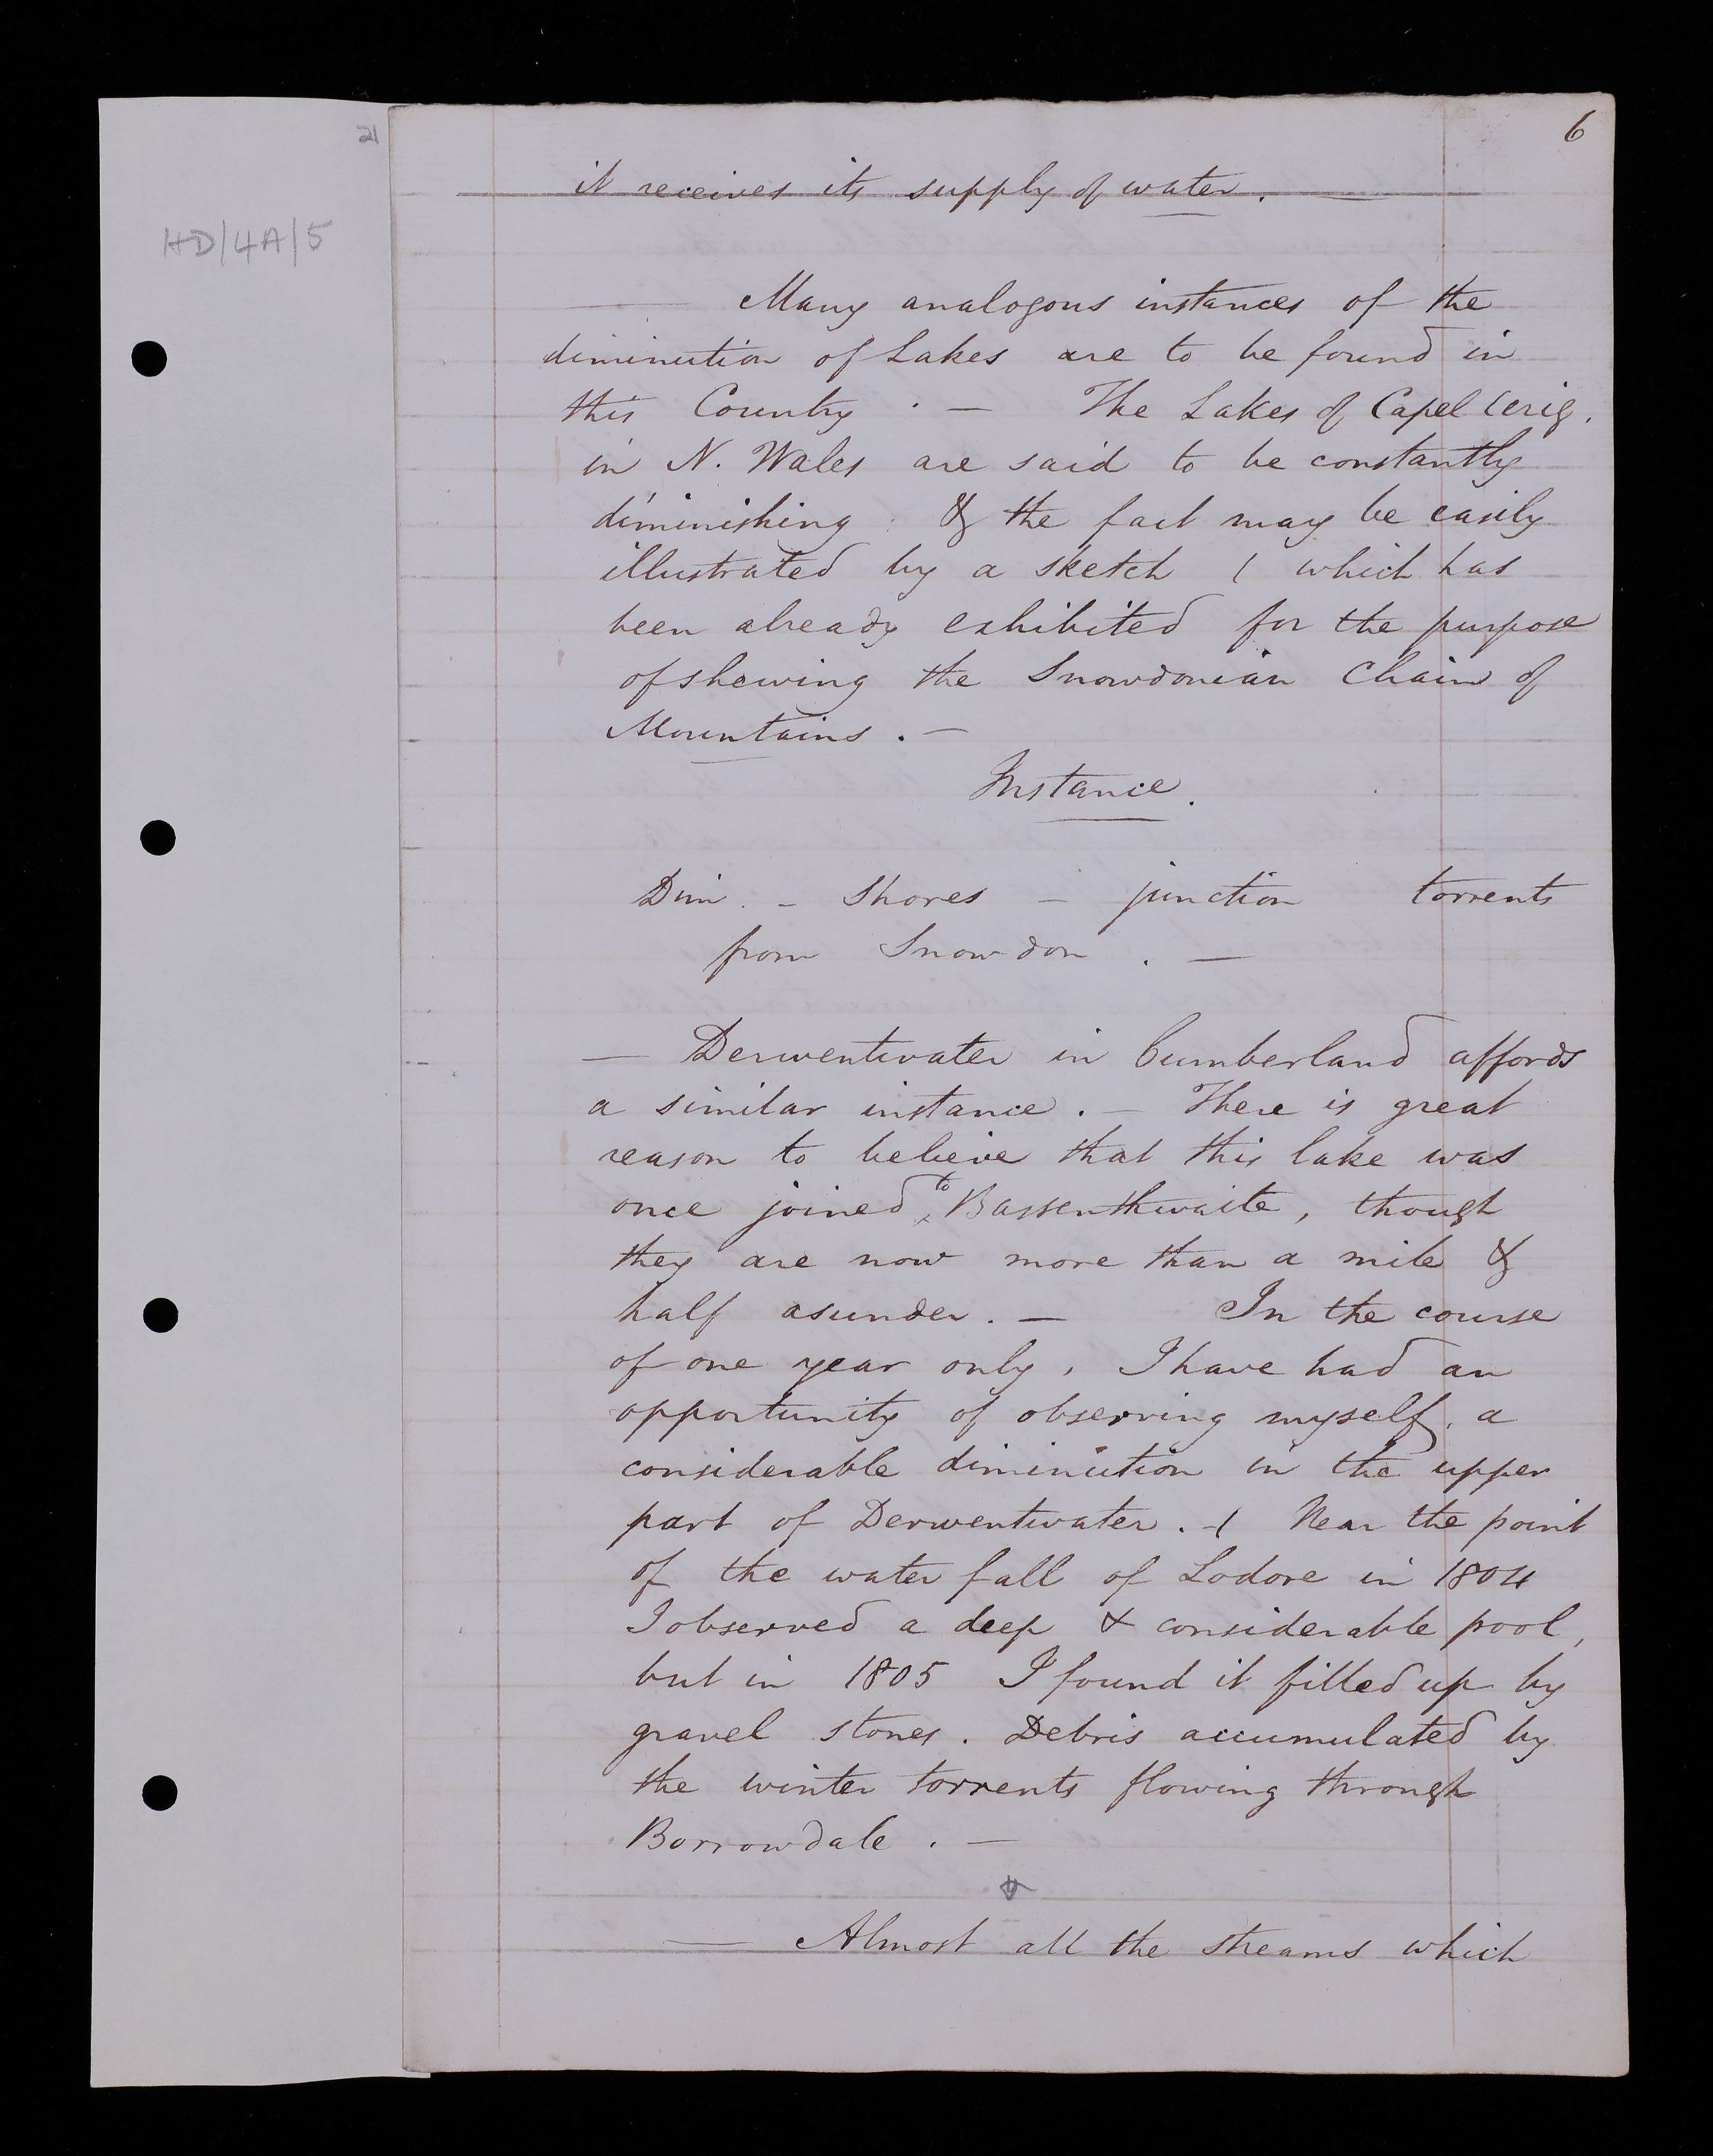 21
6
HD/4A/5
it receives its supply of water.
— Many analogous instances of the
diminution of Lakes are to be found in
this Country . — The Lakes of Capel Cerig.
in N. Wales are said to be constantly
diminishing : & the fact may be easily
illustrated by a sketch ( which has
been already exhibited for the purpose
of shewing the Snowdonian Chain of
Mountains . —
Instance.
Dim . — Shores — junction torrents
from Snowdon . —
— Derwentwater in Cumberland affords
a similar instance . — There is great
reason to believe that this lake was
once joined to Bassenthwaite, though
they are now more than a mile &
half asunder . — In the course
of one year only, I have had an
opportunity of observing myself, a
considerable diminution in the upper
part of Derwentwater . -( Near the point
of the water fall of Lodore in 1804
I observed a deep & considerable pool,
but in 1805 I found it filled up by
gravel stones . Debris accumulated by
the winter torrents flowing through
Borrowdale . —
— Almost all the streams which